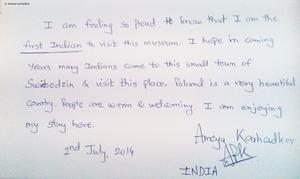 I am feeling so proud to know that I am the
first Indian to visit this museum. I hope in coming
years many Indians come to this small town of
Swibedzin & visit this place. Poland is a very beautiful
country. People are warm & welcoming. I am enjoying
my stay here.
Ameya Karhadker
2nd July, 2014
APK
INDIA